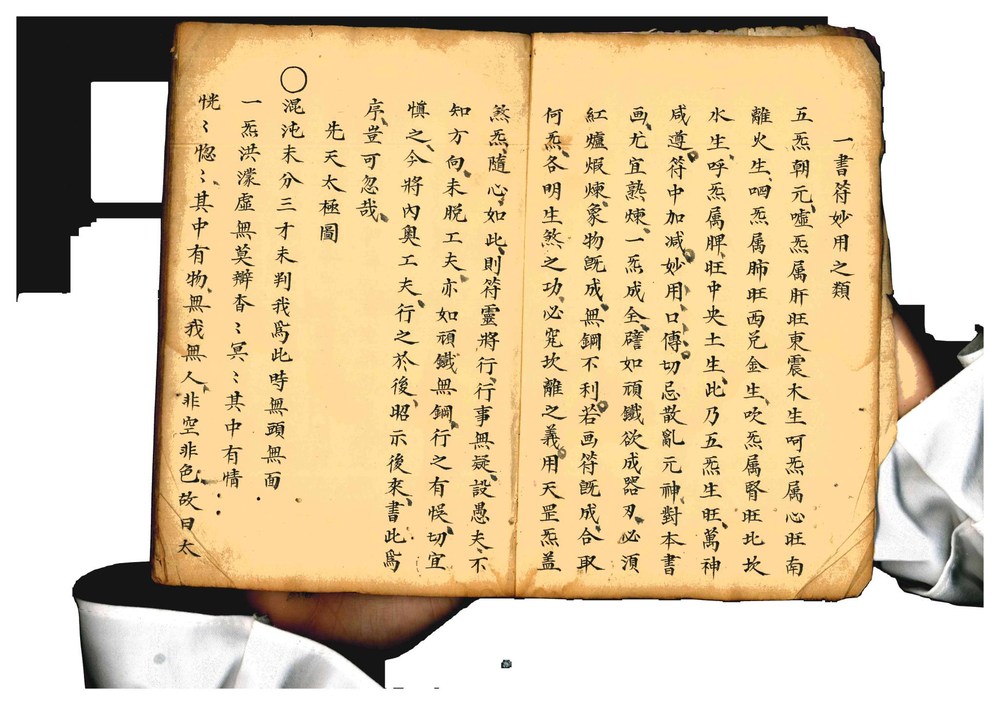 一書符妙用之類
五炁朝元噓炁属肝旺東震木生呵炁属心旺南
離火生呬炁属肺旺西兌金生吹炁属腎旺北坎
水生呼炁属脾旺中央土生此乃五炁生旺萬神
咸遵符中加减妙用口傳切忌散亂元神對本書
画尤宜熟煉一炁成全譬如頑鐵欲成器刃必湏
紅爐煅煉象物既成無鋼不利若画符既成合取
何炁各明生煞之功必究坎離之義用天罡炁蓋
煞炁隨心如此則符靈將行行事無疑設愚夫不
知方向未脱工夫亦如頑鐵無鋼行之有悞切宜
慎之今將內奥工夫行之於後昭示後來書此爲
序豈可忽哉
先天太極圖
〇混沌未分三才未判我爲此時無頭無面
一炁洪濛虛無莫辯杳〻冥〻其中有情
恍〻惚〻其中有物無我無人非空非色故曰太